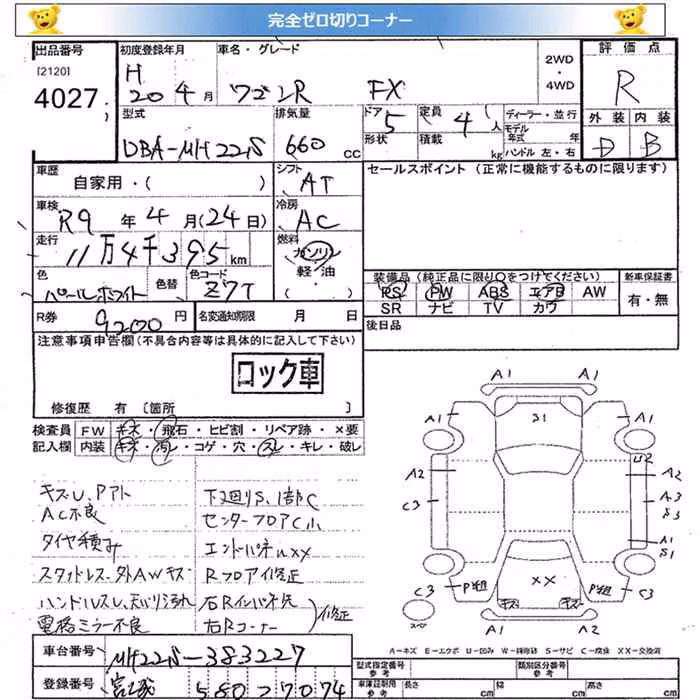 完全ゼロ切りコーナー
出品番号 初度登録年月 車名・グレード 2WD・4WD 評価点
[2120] 4027 H20年4月 ワゴンR FX R
型式 排気量 ドア 5 定員 4人 ディーラー・並行 外装 内装
DBA-MH22S 660cc 形状 積載 kg モデル年式 年 D B
ハンドル 左・右
車歴 シフト セールスポイント（正常に機能するものに限ります）
自家用・( ) AT
車検 R9年4月(24日) 冷房 AC
走行 11万4千395km 燃料 ガソリン・軽・油 ( )
色 パールホワイト 色替 色コード Z7T
装備品（純正品に限り○をつけてください） 新車保証書
PS PW ABS エアB AW 有・無
SR ナビ TV カワ
R券 9200円 名変通知期限 月 日 後日品
注意事項申告欄(不具合内容等は具体的に記入して下さい)
ロック車
修復歴 有 [箇所 ]
検査員 FW キズ・飛石・ヒビ割・リペア跡・×要
記入欄 内装 キズ・汚レ・コゲ・穴・スレ・キレ・破レ
キズU、Pアト 下廻りS、1部C
AC不良 センターフロアC小
タイヤ積み エンドパネルXX
スタッドレス、外AWキズ Rフロア修正
ハンドルスレ、天バリ汚れ 右Rインパネ先
電格ミラー不良 右Rコーナー 修正
A1 A1
A1 S1 A1
U2
A2 A2
C3 A3
S3
A1
S1
C3 P組 XX P組 C3
キズ キズ
スペア A2
A－キズ E－エクボ U－凹み W－補修跡 S－サビ C－腐食 XX－交換済
車台番号 MH22S-383227
登録番号 宮城 580 つ 7074
型式指定番号 参考 類別区分番号 参考
車庫証明用 参考 長さ cm 幅 cm 高さ cm